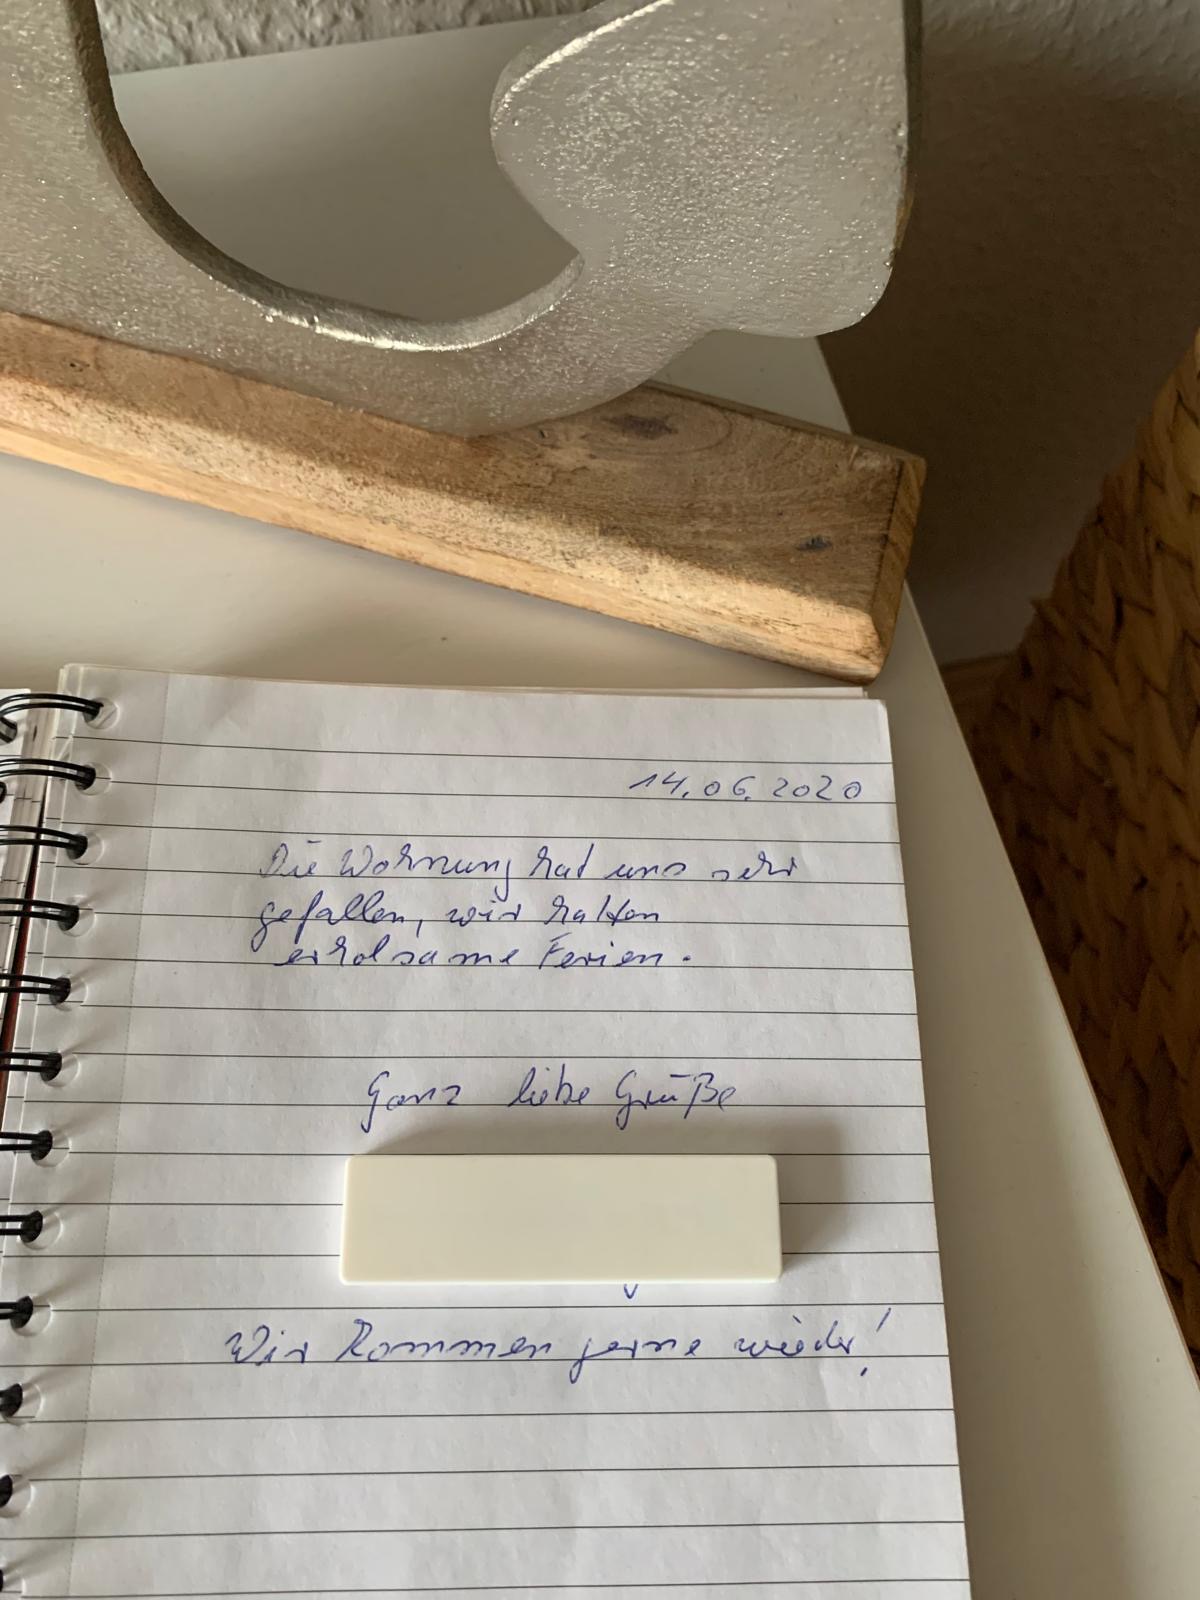 14.06.2020
Die Wohnung hat uns sehr
gefallen, wir hatten
erholsame Ferien.
Ganz liebe Grüße
Wir kommen gerne wieder!